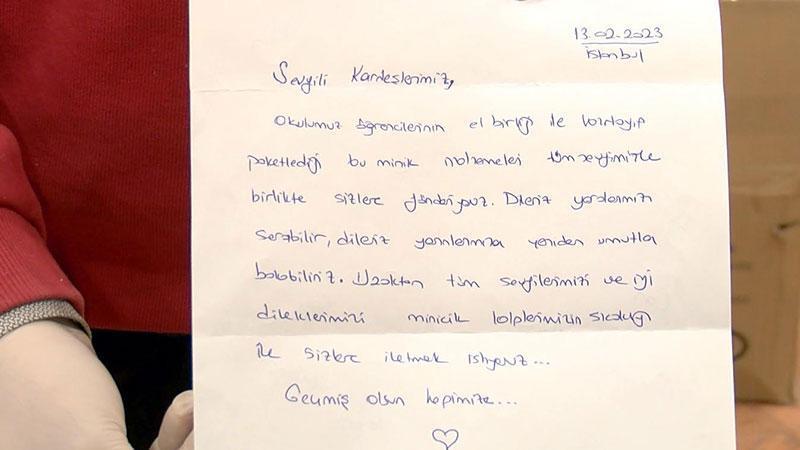 13.02.2023
İstanbul
Sevgili Kardeşlerimiz,
Okulumuz öğrencilerinin el birliği ile hazırlayıp
paketlediği bu minik malzemeleri tüm sevgimizle
birlikte sizlere gönderiyoruz. Dileriz yaralarınızı
sarabilir, dileriz yarınlarınıza yeniden umutla
bakabiliriz. Uzaktan tüm sevgilerimizi ve iyi
dileklerimizi minicik kalplerimizin sıcaklığı
ile sizlere iletmek istiyoruz...
Geçmiş olsun hepimize...